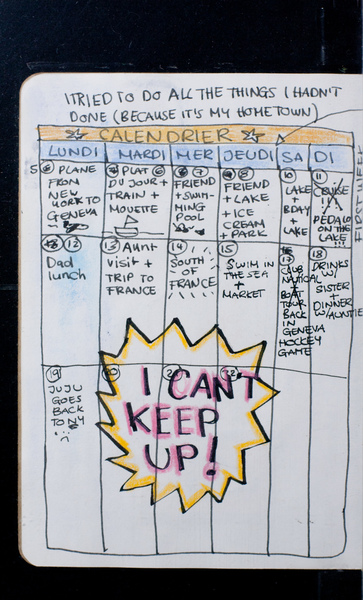 I TRIED TO DO ALL THE THINGS I HADN'T
DONE (BECAUSE IT'S MY HOMETOWN)
CALENDRIER
LUNDI MARDI MER JEUDI SA DI
5 6 PLANE
FROM
NEW
YORK TO
GENEVA
PLAT
DU JOUR +
TRAIN +
MOUETTE
7
FRIEND
+ SWIM-
MING
POOL
8
FRIEND
+ LAKE
+ ICE
CREAM
+ PARK
10
LAKE
+
BDAY
@
LAKE
11
CRUISE
PÉDALO
ON THE
LAKE
12
Dad
lunch
13 Aunt
visit +
TRIP TO
FRANCE
14
SOUTH
OF
FRANCE
15
SWIM IN
THE SEA
+
MARKET
17
CLUB
NAUTICAL
+
BOAT
TOUR
BACK
IN
GENEVA
HOCKEY
GAME
18
DRINKS
W/
SISTER
+
DINNER
W/AUNTIE
19
JUJU
GOES
BACK
TO NY
I CAN'T
KEEP
UP!